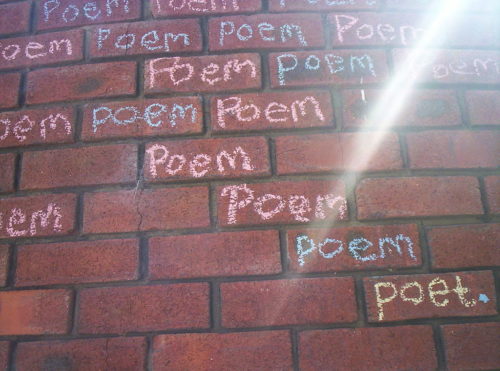 poem Poem
Poem Poem poem Poem
Poem poem Poem
oem poem Poem
Poem
em Poem
poem
poet.